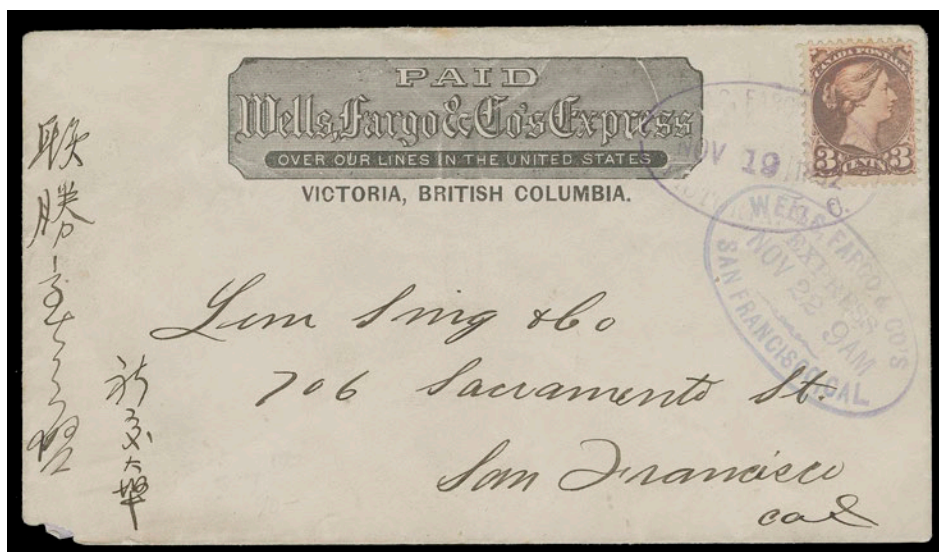 PAID
Wells, Fargo & Co's Express
OVER OUR LINES IN THE UNITED STATES
VICTORIA, BRITISH COLUMBIA.
CANADA POSTAGE
3 CENTS 3
NOV 19
WELLS, FARGO & CO'S
EXPRESS
NOV 22 9AM
SAN FRANCISCO, CAL
Lum Sing & Co
706 Sacramento St.
San Francisco
Cal
勝
大